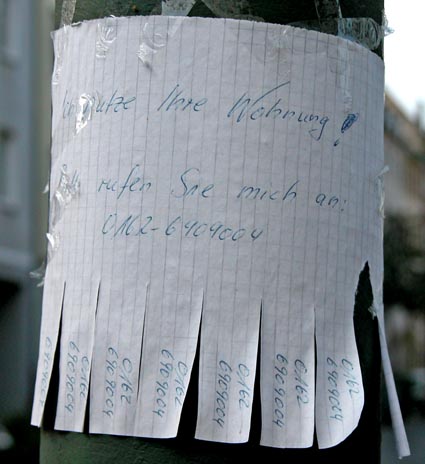 Ich putze Ihre Wohnung!
rufen Sie mich an:
0162-6909004
0162 6909004
0162
6909004
0162
6909004
0162
6909004
0162
6909004
0162
6909004
0162
6909004